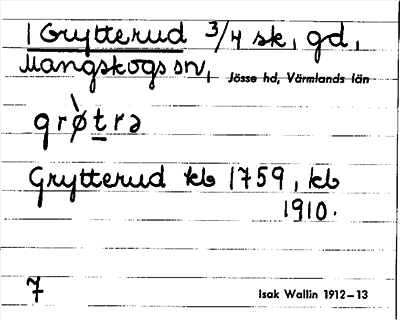 1 Grytterud 3/4 sk, gd,
Mangskogs sn, Jösse hd, Värmlands län
grø̀trə
Grytterud kb 1759, kb
1910.
7 Isak Wallin 1912–13